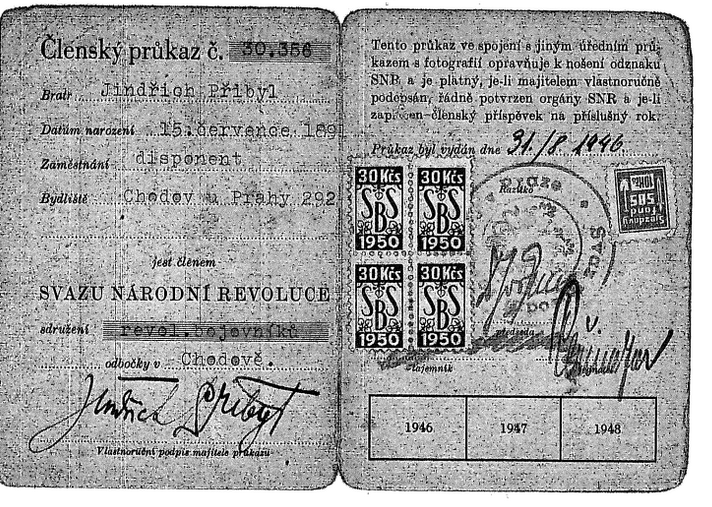 Členský průkaz č. 30.356
Bratr Jindřich Přibyl
Datum narození 15.července 189
Zaměstnání disponent
Bydliště Chodov u Prahy 292
jest členem
SVAZU NÁRODNÍ REVOLUCE
sdružení revol.bojovníků
odbočky v Chodově.
Jindřich Přibyl
Vlastnoruční podpis majitele průkazu
Tento průkaz ve spojení s jiným úředním prů-
kazem s fotografií opravňuje k nošení odznaku
SNR a je platný, je-li majitelem vlastnoručně
podepsán, řádně potvrzen orgány SNR a je-li
zaplacen členský příspěvek na příslušný rok.
Průkaz byl vydán dne 31./8. 1946
30 Kčs SBS 1950
30 Kčs SBS 1950
30 Kčs SBS 1950
30 Kčs SBS 1950
Razítko
v Praze
Svaz
Sjezdový
fond
SBS
10Kčs
předseda
tajemník
1946 1947 1948